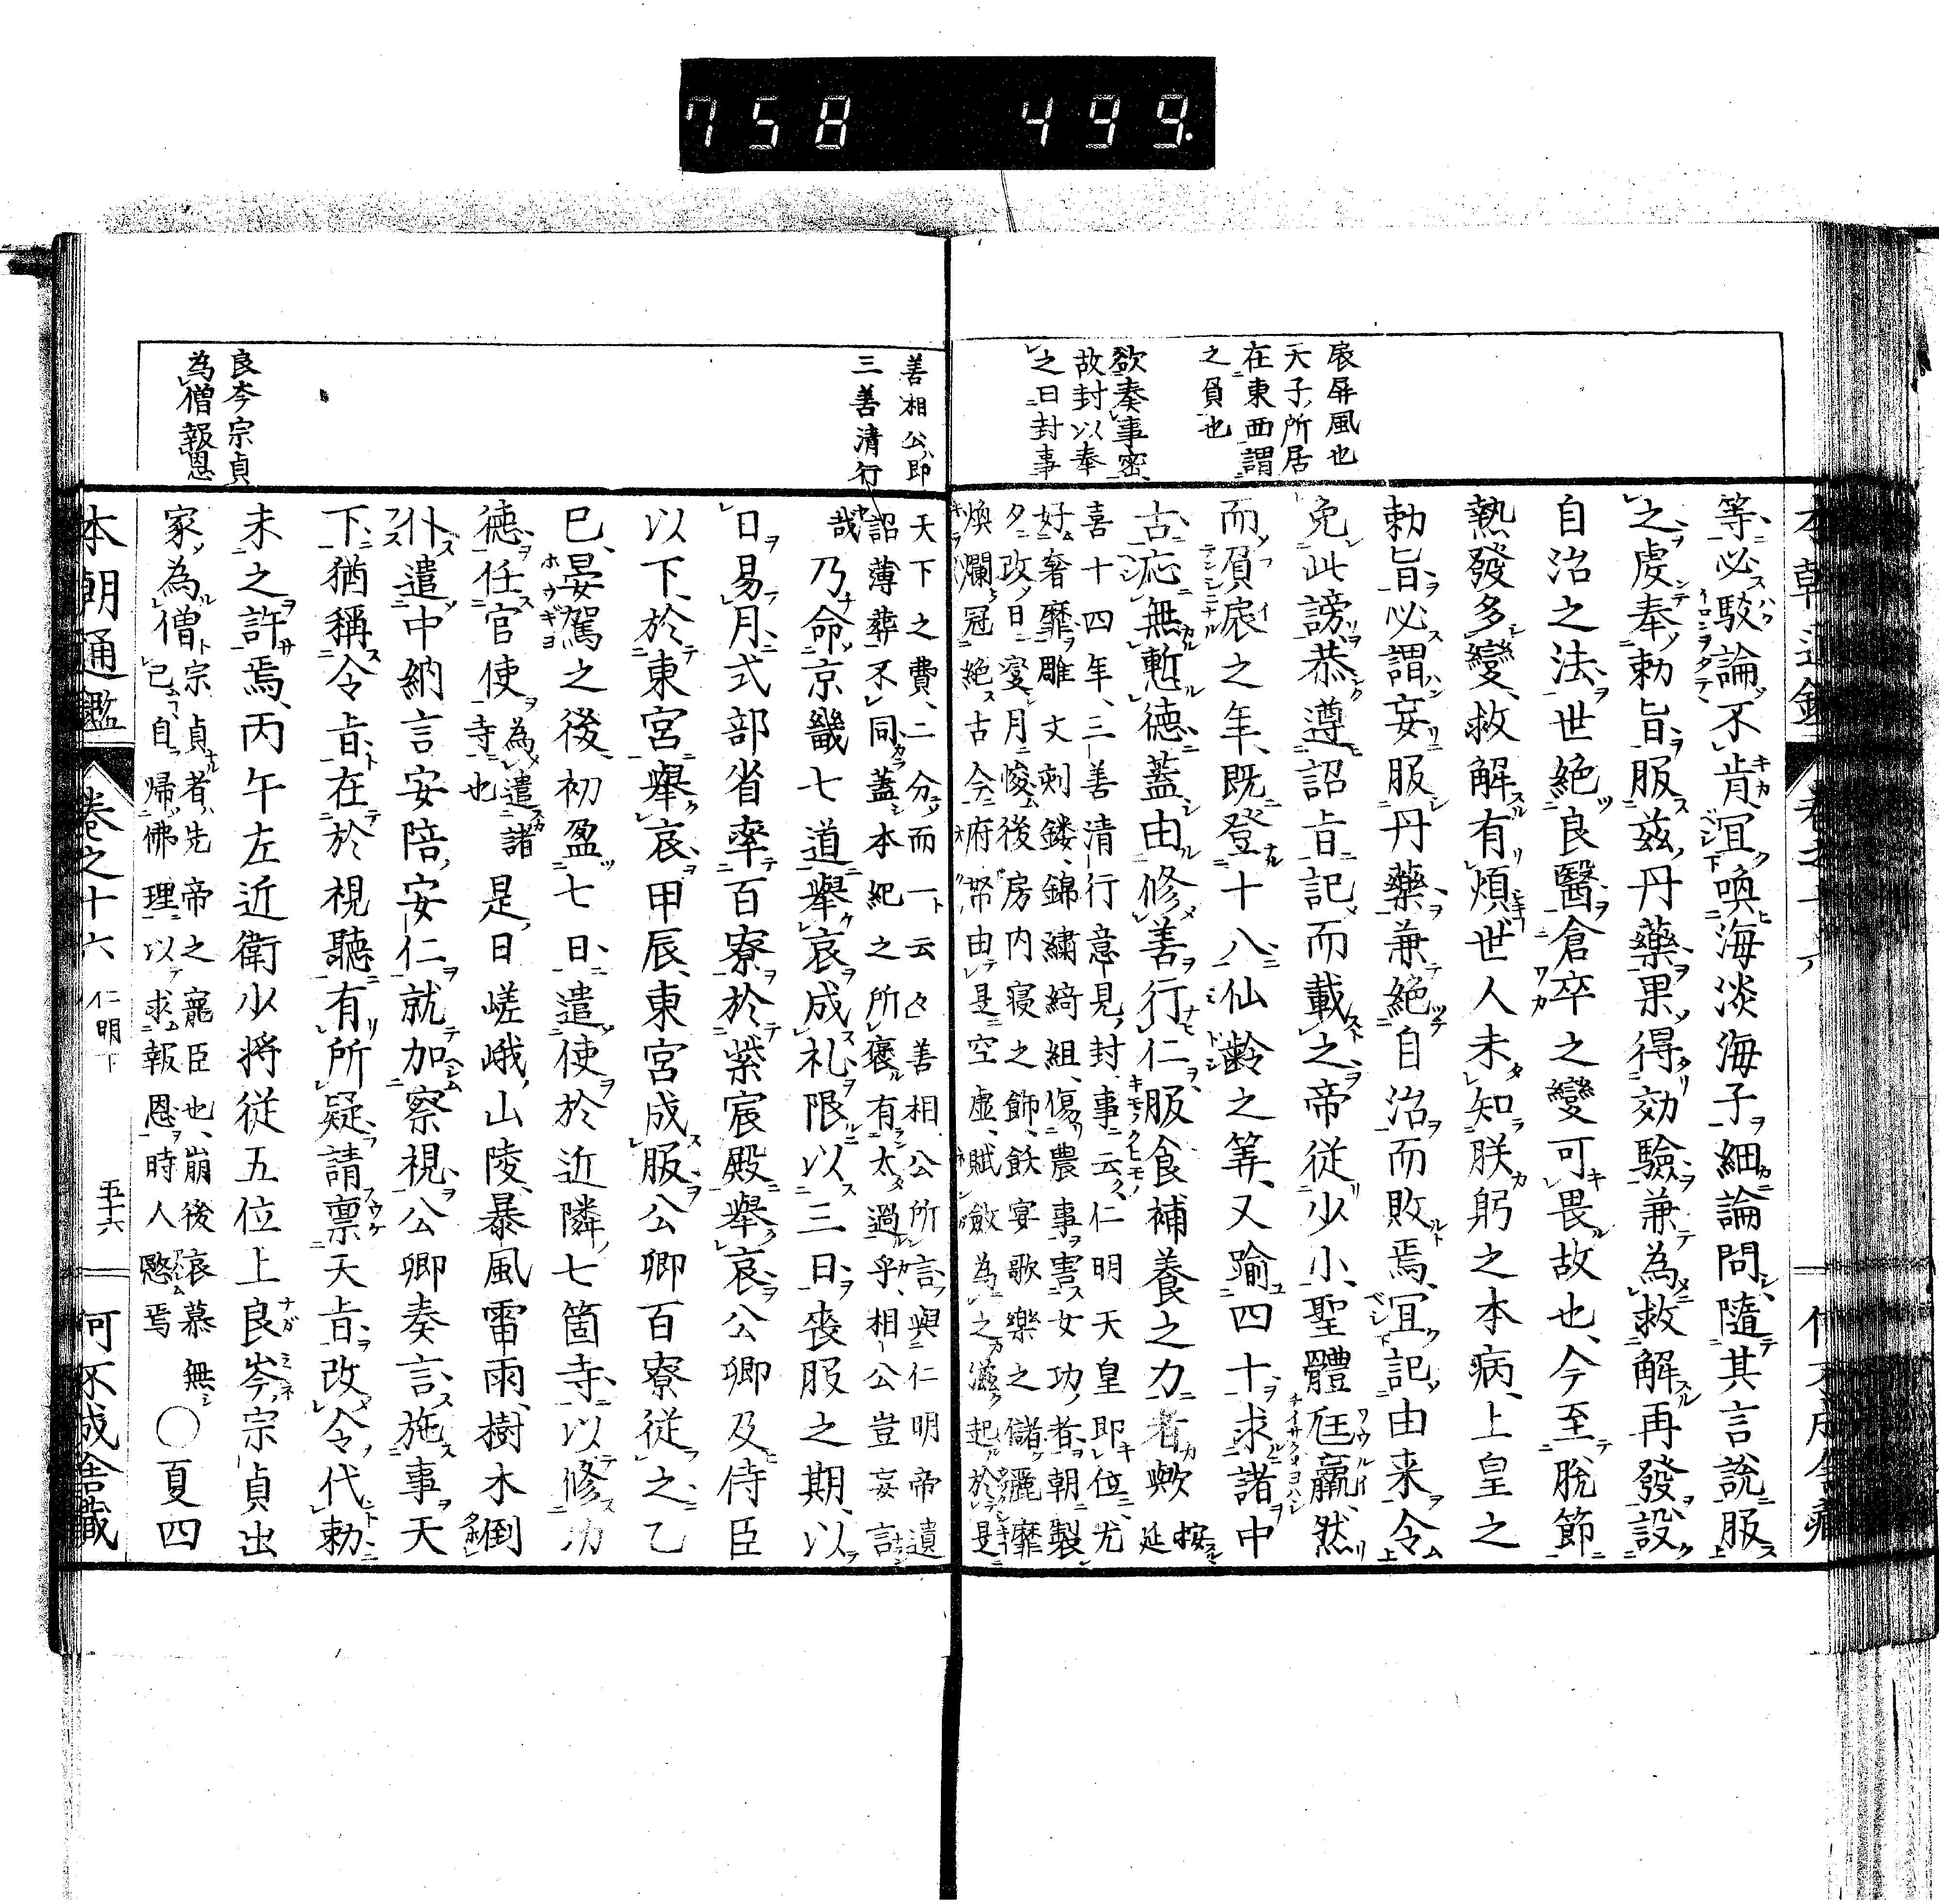 758 499.
扆屏風也
天子所居
在東西謂
之負也
欲奏事密
故封以奉
之曰封事
等必駮論不肯宜喚海淡海子細論問隨其言說服
之虔奉勅旨服茲丹藥果得効驗兼為救解再發設
自治之法世絶良醫倉卒之變可畏故也今至脫節
熱發多變救解有煩世人未知朕躬之本病上皇之
勅旨必謂妄服丹藥兼絶自治而敗焉宜記由来令
免此謗恭遵詔旨記而載之帝従少小聖體尫羸然
而負扆之年既登十八仙齡之筭又踰四十求諸中
古応無慙德蓋由修善行仁服食補養之力者歟 按延
喜十四年三善清行意見封事云仁明天皇即位尤
好奢靡雕文刻鏤錦繡綺組傷農事害女功者朝製
夕改日變月悛後房内寝之飾飫宴歌樂之儲麗靡
煥爛冠絶古今府帑由是空虛賦斂為之滋起於是
善相公即
三善清行
天下之費二分而一云々善相公所言與仁明帝遺
詔薄葬不同蓋本紀之所褒有太過乎相公豈妄言
哉 乃命京畿七道舉哀成礼限以三日喪服之期以
日易月式部省率百寮於紫宸殿舉哀公卿及侍臣
以下於東宮舉哀甲辰東宮成服公卿百寮従之乙
巳晏駕之後初盈七日遣使於近隣七箇寺以修功
德任官使 為遣諸寺也 是日嵯峨山陵暴風雷雨樹木倒
仆遣中納言安陪安仁就加察視公卿奏言施事天
下猶稱令旨在於視聽有所疑請稟天旨改令代勅
未之許焉丙午左近衛少將従五位上良岑宗貞出
家為僧 宗貞者先帝之寵臣也崩後哀慕無已自歸佛理以求報恩時人愍焉 ○夏四
良岑宗貞
為僧報恩
本朝通鑑 巻之十六 仁明下 五十六 何不成舎藏